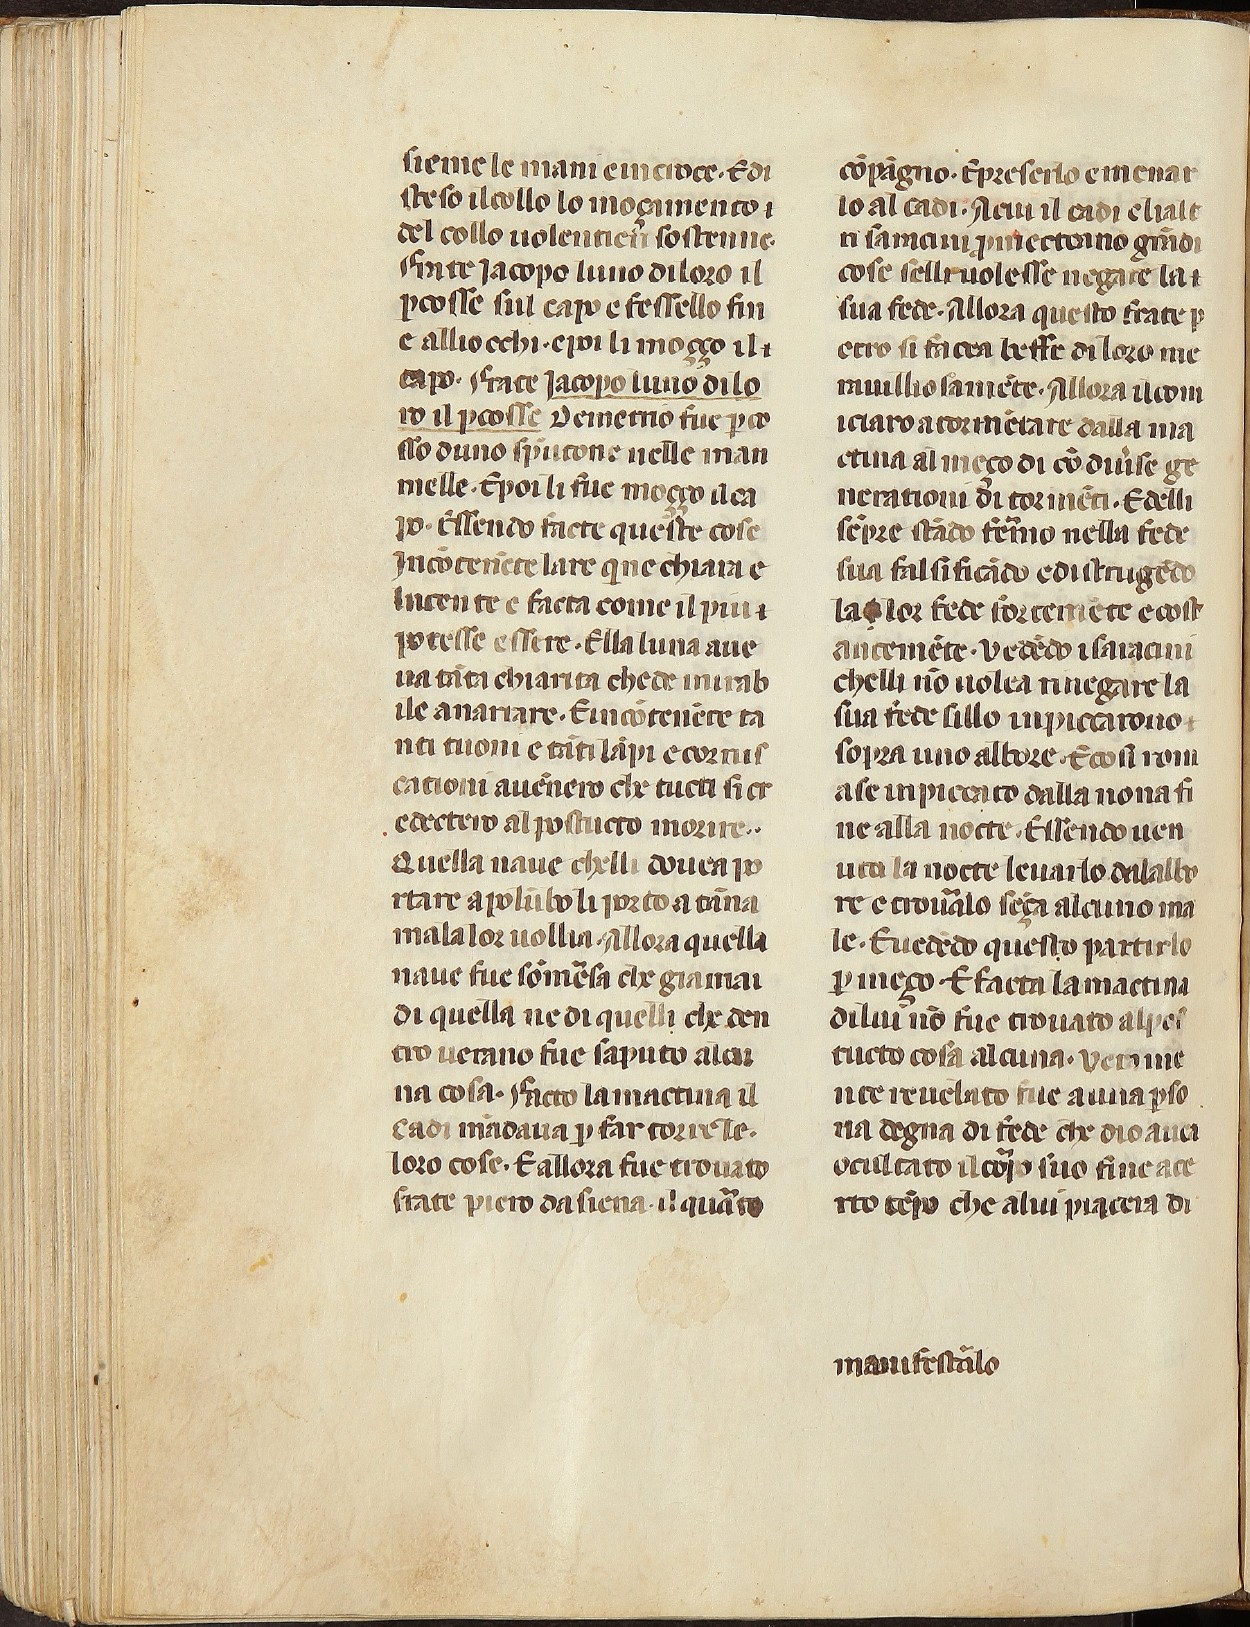 sieme le mani e in croce. E di
steso il collo lo moçamento
del collo uolentieri sostenne.
Frate Jacopo luno di loro il
pcosse sul capo e fessello fin
e alli occhi. epoi li moçço il
capo. Frate Jacopo luno di lo
ro il pcosse Demetrio fue pco
sso duno spuntone nelle mam
melle. E poi li fue moçço il ca
po. Essendo facte queste cose
Incōtenēte lare que chiara e
lucente e facta come il piu
potesse essere. Ella luna aue
ua tāta chiarita che de mirab
ile a narrare. E incōtenēte ta
nti tuoni e tāti lāpi e corrus
cationi auēnero che tucti si cr
edectero al postucto morire..
Quella naue chelli douea po
rtare a polūbo li porto a tāna
mala lor uollia. Allora quella
naue fue sōmersa che giamai
di quella ne di quelli che den
tro uerano fue saputo alcu
na cosa. Facto la mactina il
Cadi mādaua p far torre le
loro cose. E allora fue trouato
frate piero da siena. il quāto
cōpāgno. E preserlo e menar
lo al cadi. Acui il cadi e lialt
ri saracini pmectonno grādi
cose selli uolesse negare la
sua fede. Allora questo frate p
etro si facea beffe di loro me
rauilliosamēte. Allora il com
iciaro a tormētare dalla ma
ctina al meço di cō diuise ge
nerationi di tormēti. Edelli
sēpre stādo fermo nella fede
sua falsificādo e distrugēdo
la lor fede fortemēte e cost
antemēte. Vedēdo i saracini
chelli nō uolea rinegare la
sua fede sillo inpiccarono
sopra uno albore. E cosi rim
ase inpiccato dalla nona fi
ne alla nocte. Essendo uen
uta la nocte leuarlo dalalbo
re e trouarlo sēça alcuno ma
le. E uedēdo questo partirlo
p meço. E facta la mactina
di lui nō fue trouato al pos
tucto cosa alcuna. Verame
nte reuelato fue a una pso
na degna di fede che dio auea
ocultato il corpo suo fine a ce
rto tēpo che a lui piacera di
manifestarlo